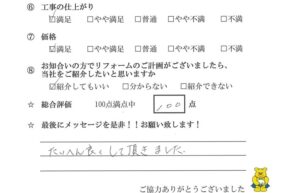 ⑥ 工事の仕上がり
☑満足 □やや満足 □普通 □やや不満 □不満
⑦ 価格
☑満足 □やや満足 □普通 □やや不満 □不満
⑧ お知合いの方でリフォームのご計画がございましたら、
当社をご紹介したいと思いますか
☑紹介してもいい □分からない □紹介できない
☆ 総合評価 100点満点中 100 点
☆ 最後にメッセージを是非！！お願い致します！
たいへん良くして頂きました。
ご協力ありがとうございました